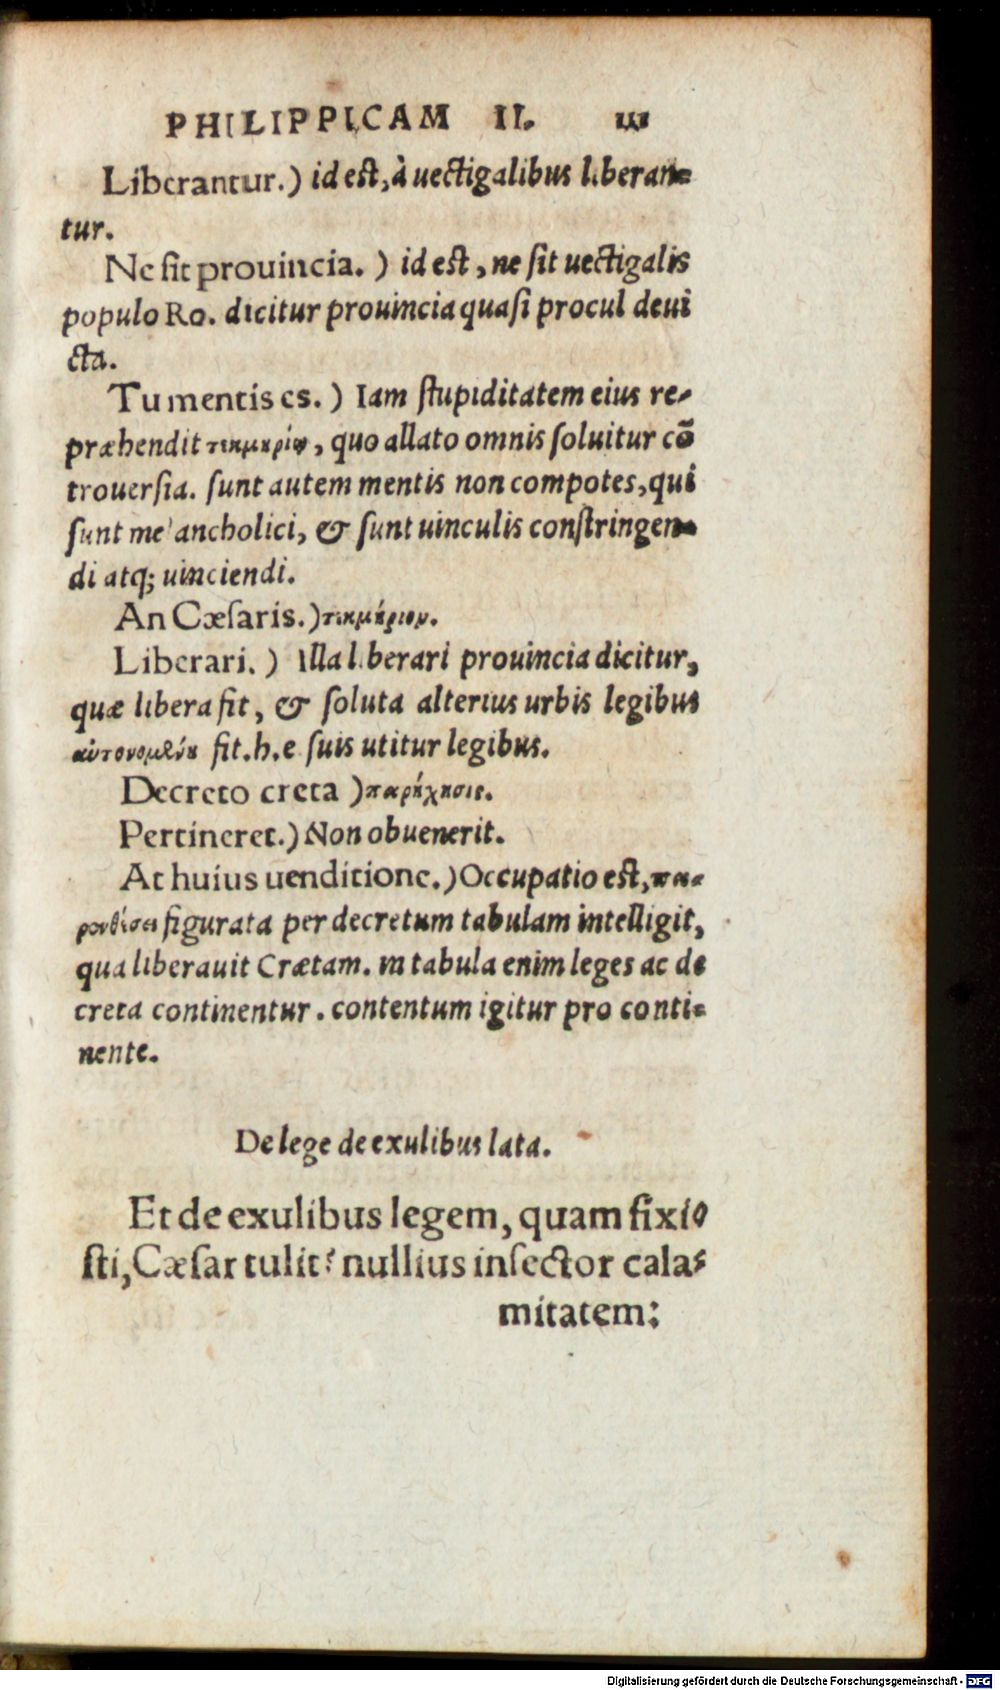 PHILIPPICAM II. 111
Liberantur.) id est, à uectigalibus liberan=
tur.
Ne sit prouincia. ) id est, ne sit uectigalis
populo Ro. dicitur prouincia quasi procul deui
cta.
Tu mentis es. ) Iam stupiditatem eius re-
præhendit τεκμηρίῳ, quo allato omnis soluitur cō
trouersia. sunt autem mentis non compotes, qui
sunt melancholici, & sunt uinculis constringen=
di atq; uinciendi.
An Cæsaris.) τεκμήριον.
Liberari. ) Illa liberari prouincia dicitur,
quæ libera fit, & soluta alterius urbis legibus
fit. h. e suis utitur legibus.
Decreto creta ) παρήχησις.
Pertineret.) Non obuenerit.
At huius uenditione.) Occupatio est, πα-
ρενθέσει figurata per decretum tabulam intelligit,
qua liberauit Crætam. in tabula enim leges ac de
creta continentur. contentum igitur pro conti=
nente.
De lege de exulibus lata.
Et de exulibus legem, quam fixi-
sti, Cæsar tulit? nullius insector cala-
mitatem:
Digitalisierung gefördert durch die Deutsche Forschungsgemeinschaft - DFG